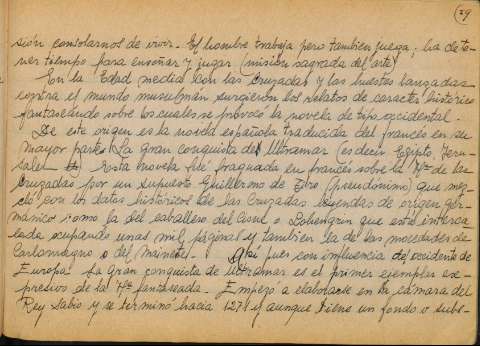 29
sión consolarnos de vivir. El hombre trabaja pero tambien juega; ha de te-
ner tiempo para enseñar y jugar (misión sagrada del arte)
En la Edad media con las cruzadas y las huestes lanzadas
contra el mundo musulmán surgieron los relatos de caracter historico
fantaseando sobre los cuales se provocó la novela de tipo occidental.
De este origen es la novela española traducida del francés en su
mayor parte "La gran conquista de Ultramar (es decir Egipto, Jeru-
salen Esta novela fué fraguada en francés sobre la Hª de las
Cruzadas por un supuesto Guillermo de Tiro (pseudónimo) que mez-
cló con los datos historicos de las Cruzadas leyendas de origen ger-
manico como la del caballero del Cisne o Lohengrin que está interca-
lada ocupando unas mil páginas y tambien la de las mocedades de
Carlomagno o del Mainete. Asi pues con influencia del occidente de
Europa. La Gran conquista de Ultramar es el primer ejemplar ex-
presivo de la Hª fantaseada. Empezó a elaborarse en la cámara del
Rey Sabio y se terminó hacia 1271 y aunque tiene un fondo o subs-